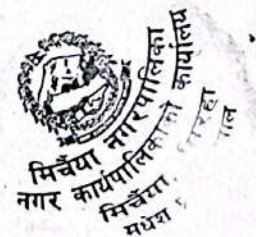 मिर्चैया नगरपालिका
नगर कार्यपालिकाको कार्यालय
मिर्चैया,
मधेश